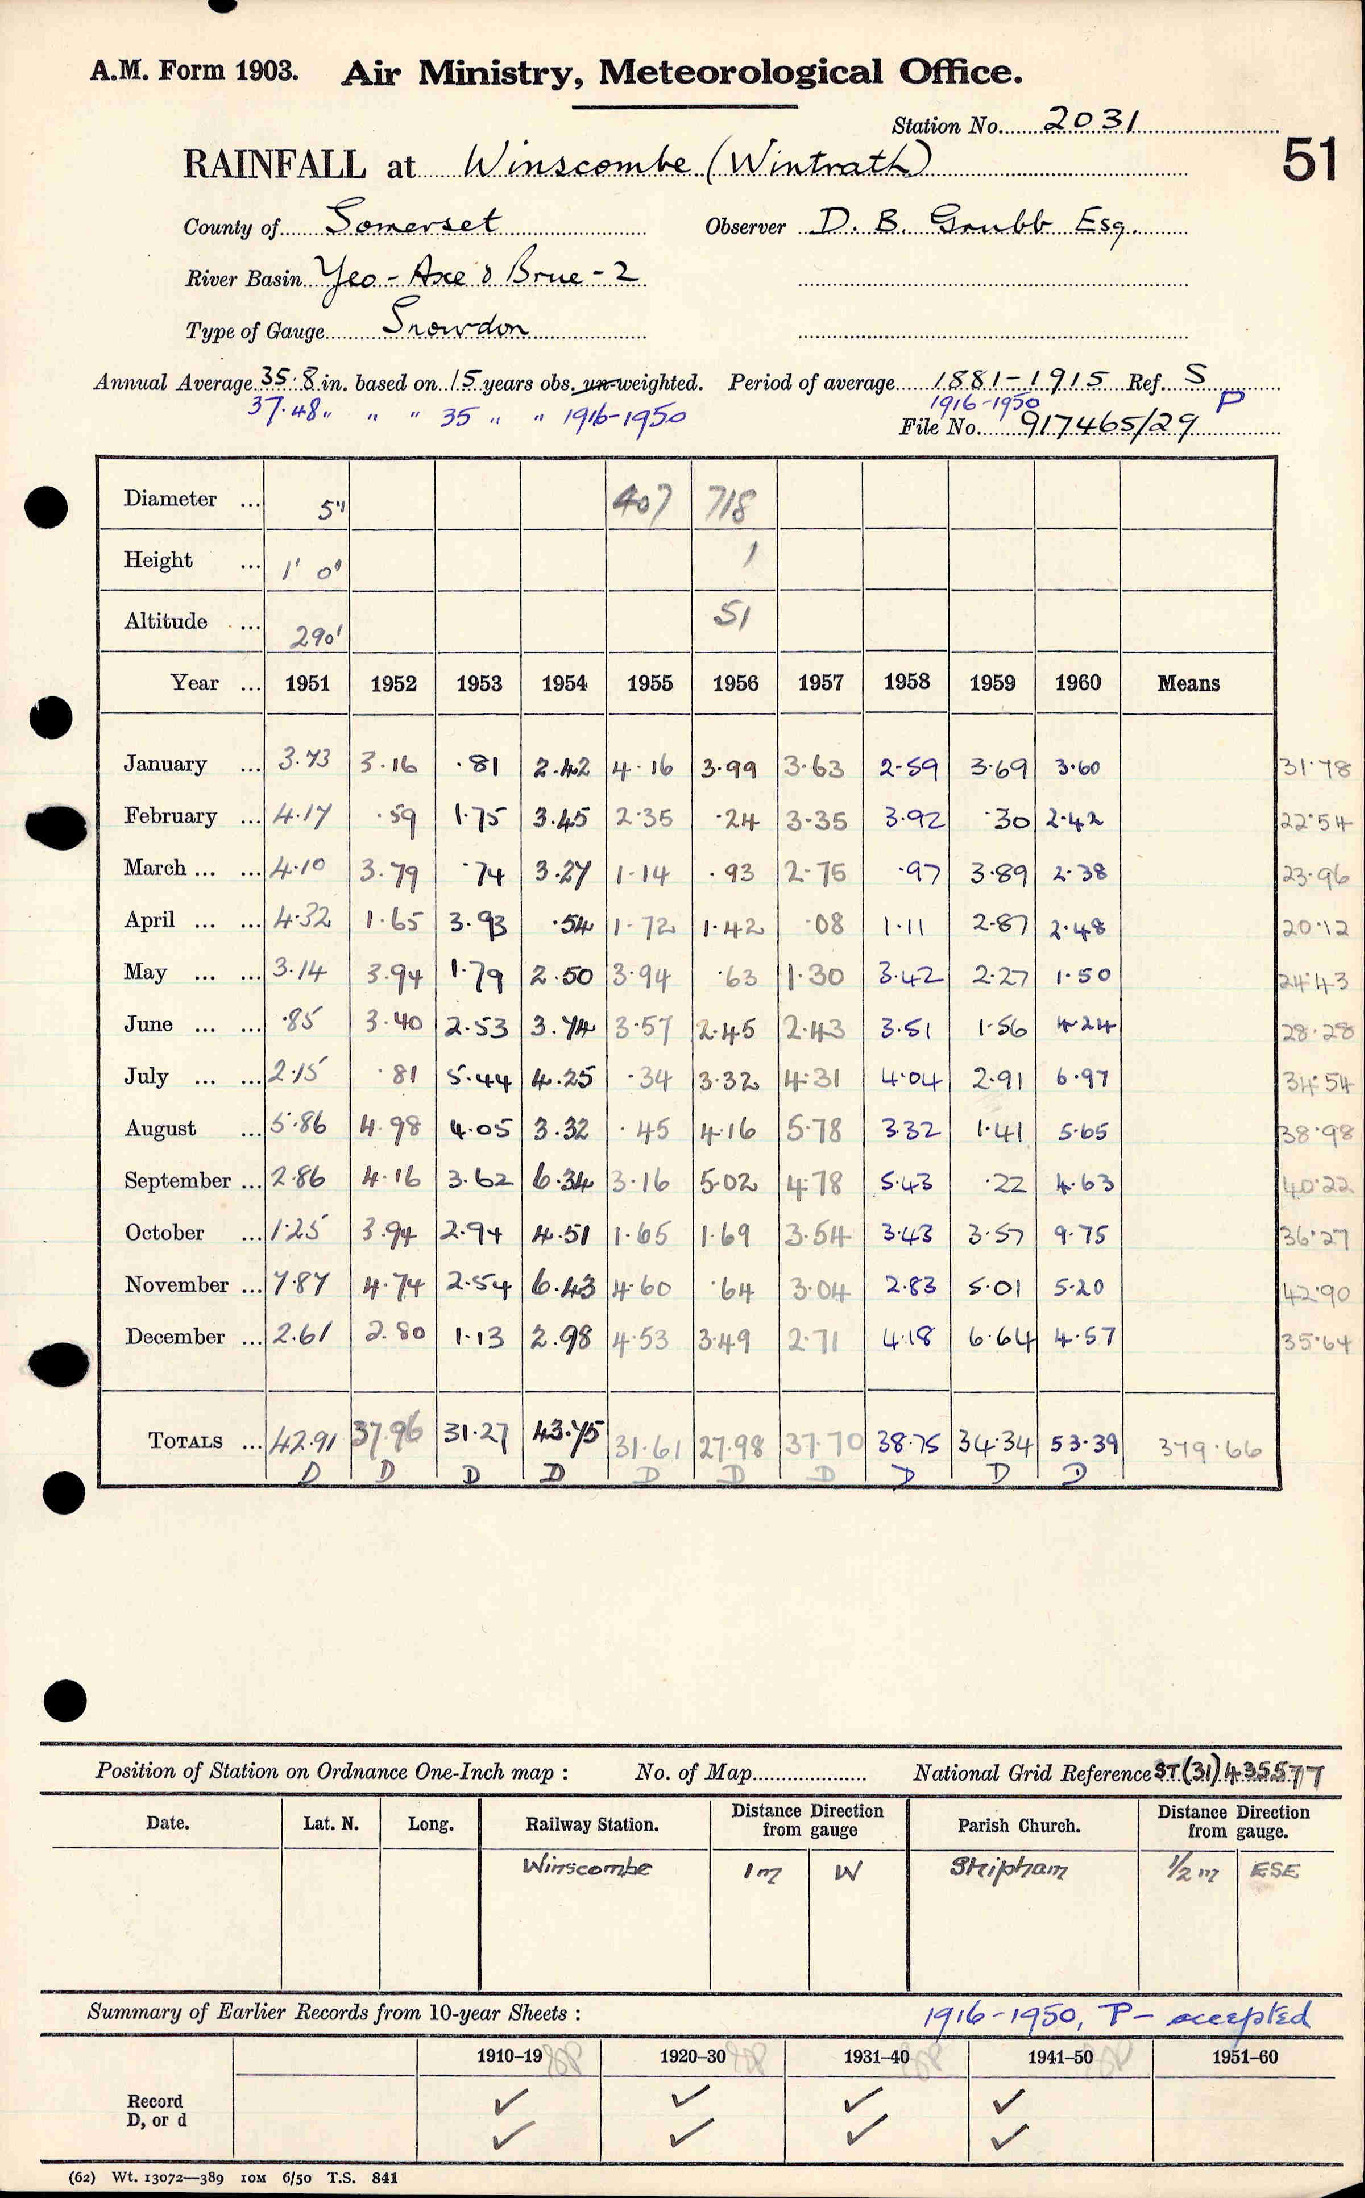 A.M. Form 1903. Air Ministry, Meteorological Office.
Station No. 2031
51
RAINFALL at Winscombe (Wintrath)
County of Somerset Observer D. B. Grubb Esq.
River Basin Yeo - Axe & Brue - 2
Type of Gauge Snowdon
Annual Average 35.8 in. based on 15 years obs. un-weighted. Period of average 1881-1915 Ref. S
37.48 " " " 35 " " 1916-1950 1916-1950 P
File No. 917465/29
Diameter ... 5" 407 718
Height ... 1' 0" 1
Altitude ... 290' 51
Year ... 1951 1952 1953 1954 1955 1956 1957 1958 1959 1960 Means
January ... 3.73 3.16 .81 2.42 4.16 3.99 3.63 2.59 3.69 3.60 31.78
February ... 4.17 .59 1.75 3.45 2.35 .24 3.35 3.92 .30 2.42 22.54
March ... ... 4.10 3.79 .74 3.27 1.14 .93 2.75 .97 3.89 2.38 23.96
April ... ... 4.32 1.65 3.93 .54 1.72 1.42 .08 1.11 2.87 2.48 20.12
May ... ... 3.14 3.94 1.79 2.50 3.94 .63 1.30 3.42 2.27 1.50 24.43
June ... ... .85 3.40 2.53 3.74 3.57 2.45 2.43 3.51 1.56 4.24 28.28
July ... ... 2.15 .81 5.44 4.25 .34 3.32 4.31 4.04 2.91 6.97 34.54
August ... 5.86 4.98 4.05 3.32 .45 4.16 5.78 3.32 1.41 5.65 38.98
September ... 2.86 4.16 3.62 6.34 3.16 5.02 4.78 5.43 .22 4.63 40.22
October ... 1.25 3.94 2.94 4.51 1.65 1.69 3.54 3.43 3.57 9.75 36.27
November ... 7.87 4.74 2.54 6.43 4.60 .64 3.04 2.83 5.01 5.20 42.90
December ... 2.61 2.80 1.13 2.98 4.53 3.49 2.71 4.18 6.64 4.57 35.64
TOTALS ... 42.91 37.96 31.27 43.75 31.61 27.98 37.70 38.75 34.34 53.39 379.66
D D D D D D D D D D
Position of Station on Ordnance One-Inch map : No. of Map National Grid Reference ST(31)435577
Date. Lat. N. Long. Railway Station. Distance Direction from gauge Parish Church. Distance Direction from gauge.
Winscombe 1m W Shipham 1/2 m ESE
Summary of Earlier Records from 10-year Sheets : 1916-1950, P - accepted
1910–19 1920–30 1931–40 1941–50 1951–60
Record ✓ ✓ ✓ ✓
D, or d ✓ ✓ ✓ ✓
(62) Wt. 13072—389 10M 6/50 T.S. 841